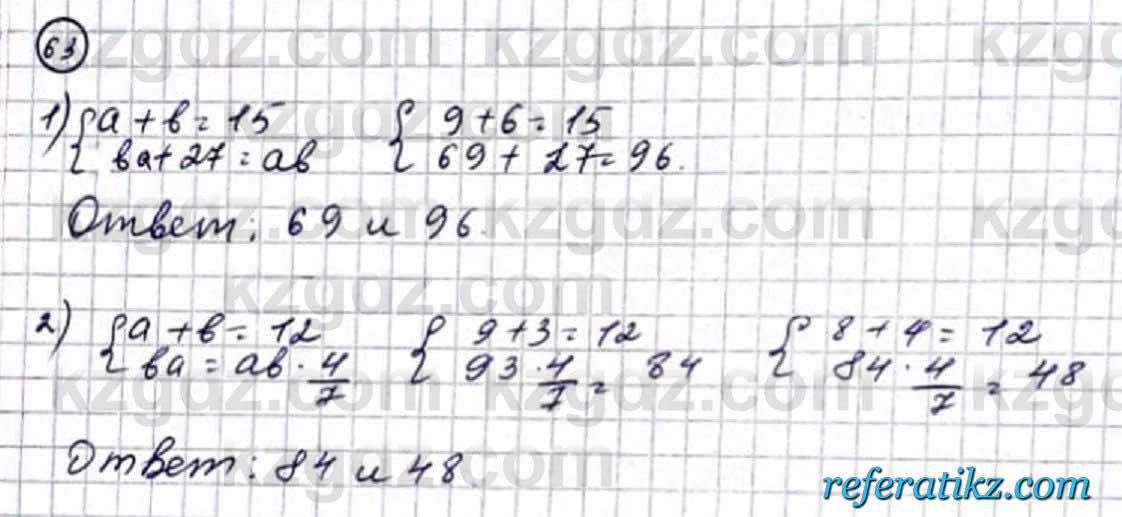 63
1) { a + b = 15 { 9 + 6 = 15
{ ba + 27 = ab { 69 + 27 = 96.
Ответ: 69 и 96.
2) { a + b = 12 { 9 + 3 = 12 { 8 + 4 = 12
{ ba = ab · 4/7 { 93 · 4/7 = 84 { 84 · 4/7 = 48
Ответ: 84 и 48
kzgdz.com kzgdz.com kzgdz.com
kzgdz.com kzgdz.com kzgdz.com
kzgdz.com kzgdz.com
kzgdz.com kzgdz.com kzgdz.com
kzgdz.com
referatikz.com